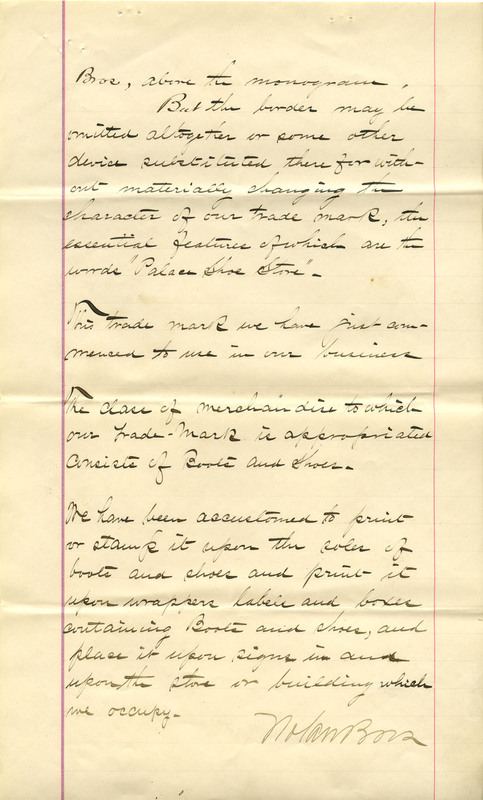 Bros, above the monogram.
But the border may be
omitted altogether or some other
device substituted there for with-
out materially changing the
character of our trade mark, the
essential features of which are the
words "Palace Shoe Store"-
This trade mark we have just com-
menced to use in our business
The class of merchandise to which
our trade-Mark is appropriated
Consists of Boots and Shoes-
We have been accustomed to print
or stamp it upon the soles of
boots and shoes and print it
upon wrappers labels and boxes
containing Boots and shoes, and
place it upon signs in and
upon the store or building which
we occupy-
Nolan Bros